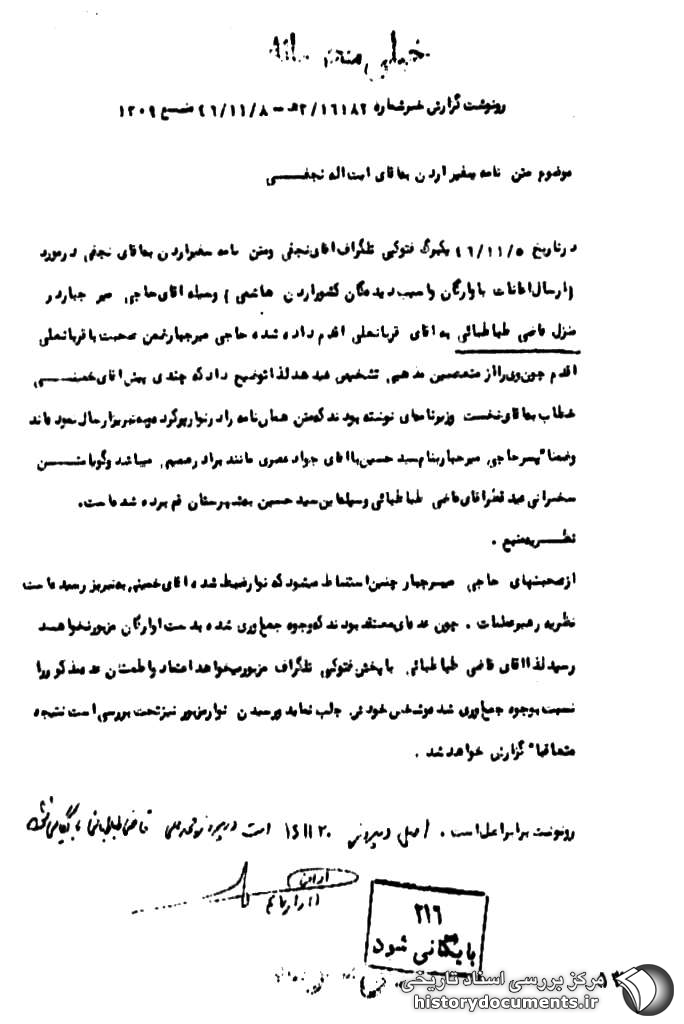 خیلی محرمانه
رونوشت گزارش خبر شماره ۱۶۱۸۲/ه۲ – ۴۶/۱۱/۸ منبع ۱۲۰۹
موضوع متن نامه سفیر اردن به آقای آیت اله نجفی
در تاریخ ۴۶/۱۱/۵ یکبرگ فتوکپی تلگراف آقای نجفی و متن نامه سفیر اردن به آقای نجفی در مورد
(ارسال اعانات با وارگان و آسیب دیده گان کشور اردن هاشمی) وسیله آقای حاجی میر جبار در
منزل قاضی طباطبائی به آقای قربانعلی اقدم داده شده حاجی میر جبار ضمن صحبت با قربانعلی
اقدم چون وی را از متعصبین مذهبی تشخیص میدهد لذا توضیح داد که چندی پیش آقای خمینی
خطاب به آقای نخست وزیر نامه‌ای نوشته بودند که متن همان نامه را در نوار پر کرده و به تبریز ارسال نموده‌اند
وضمنا پسر حاجی میر جبار بنام سید حسین با آقای جواد عصری مانند برادر صمیمی میباشد و گویا متن
سخنرانی عید فطر آقای قاضی طباطبائی وسیله این سید حسین به شهرستان قم برده شده است.
نظریه منبع .
از صحبتهای حاجی میر جبار چنین استنباط میشود که نوار ضبط شده آقای خمینی به تبریز رسیده است
نظریه رهبر عملیات . چون عده‌ای معتقد بودند که وجوه جمع‌آوری شده بدست آوارگان مزبور نخواهد
رسید لذا آقای قاضی طباطبائی با پخش فتوکپی تلگراف مزبور میخواهد اعتماد و اطمینان عده مذکور را
نسبت به وجوه جمع‌آوری شده و شخص خودش جلب نماید و رسیدن نوار مزبور نیز تحت بررسی است نتیجه
متعاقبا گزارش خواهد شد .
رونوشت برابر اصل است . اصل در پرونده ۱۶۱۱۲۰ است در پرونده محمدعلی قاضی طباطبائی بایگانی شود
۲۱۶
بایگانی شود
مرکز بررسی اسناد تاریخی
historydocuments.ir